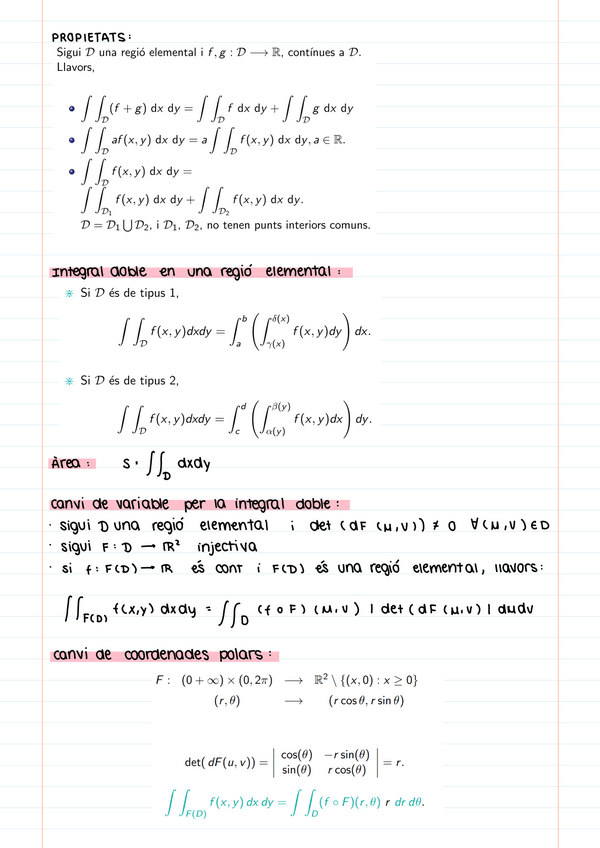 PROPIETATS:
Sigui 𝒟 una regió elemental i f, g : 𝒟 ⟶ ℝ, contínues a 𝒟.
Llavors,
• ∫∫_𝒟 (f + g) dx dy = ∫∫_𝒟 f dx dy + ∫∫_𝒟 g dx dy
• ∫∫_𝒟 af(x, y) dx dy = a ∫∫_𝒟 f(x, y) dx dy, a ∈ ℝ.
• ∫∫_𝒟 f(x, y) dx dy =
∫∫_𝒟₁ f(x, y) dx dy + ∫∫_𝒟₂ f(x, y) dx dy.
𝒟 = 𝒟₁ ⋃ 𝒟₂, i 𝒟₁, 𝒟₂, no tenen punts interiors comuns.
Integral doble en una regió elemental :
✳ Si 𝒟 és de tipus 1,
∫∫_𝒟 f(x, y)dxdy = ∫_a^b ( ∫_{γ(x)}^{δ(x)} f(x, y)dy ) dx.
✳ Si 𝒟 és de tipus 2,
∫∫_𝒟 f(x, y)dxdy = ∫_c^d ( ∫_{α(y)}^{β(y)} f(x, y)dx ) dy.
Àrea : S = ∫∫_D dxdy
canvi de variable per la integral doble :
· sigui D una regió elemental i det (dF (μ,v)) ≠ 0 ∀(μ,v) ∈ D
· sigui F : D → ℝ² injectiva
· si f : F(D) → ℝ és cont i F(D) és una regió elemental, llavors:
∫∫_{F(D)} f(x,y) dxdy = ∫∫_D (f ∘ F) (μ,v) | det (dF (μ,v) | dμdv
canvi de coordenades polars :
F : (0 + ∞) × (0, 2π) ⟶ ℝ² \ {(x, 0) : x ≥ 0}
(r, θ) ⟶ (r cos θ, r sin θ)
det( dF(u, v)) = | cos(θ) −r sin(θ) |
| sin(θ) r cos(θ) | = r.
∫∫_{F(D)} f(x, y) dx dy = ∫∫_D (f ∘ F)(r, θ) r dr dθ.